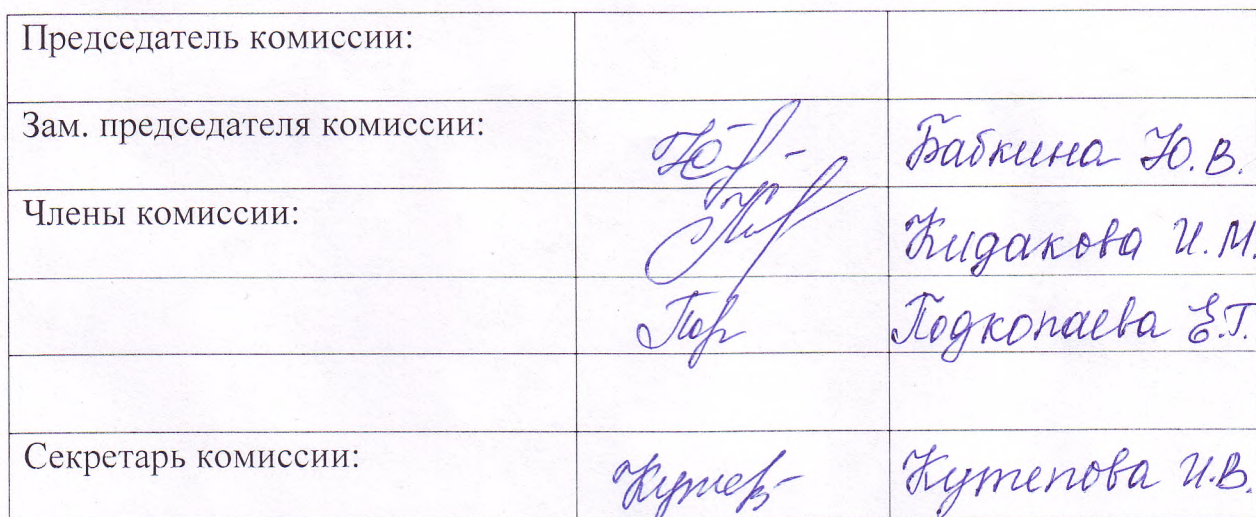 Председатель комиссии:
Зам. председателя комиссии: Бабкина Ю.В.
Члены комиссии: Кидакова И.М.
Подкопаева Е.Г.
Секретарь комиссии: Кутепова И.В.